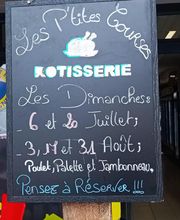 Les P'tites Courses
ROTISSERIE
Les Dimanches:
6 et 20 Juillet;
3, 17 et 31 Août;
Poulet, Palette et Jambonneau.
Pensez à Réserver !!!